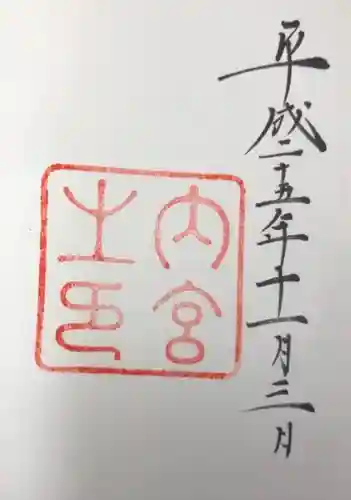 平成二十五年十一月三日
内宮
之印